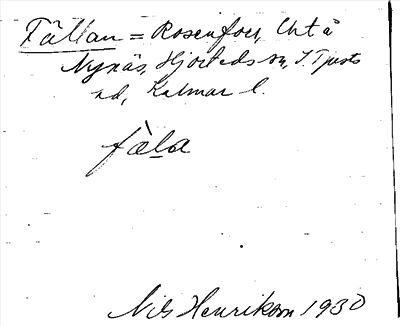 Fällan = Rosenfors, Urt å
Nynäs, Hjorteds sn, S. Tjusts
hd, Kalmar l.
fæla
Nils Henrikson 1930